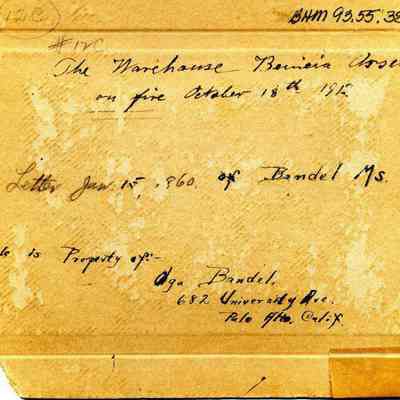 12C
BHM 93.55.38
#12C
The Warehouse Benicia Arse
on fire October 18th 191
Letter Jan. 15, 1860. of Bandel Ms.
is Property of:-
Olga Bandel.
682 University Ave.
Palo Alto. Calif.